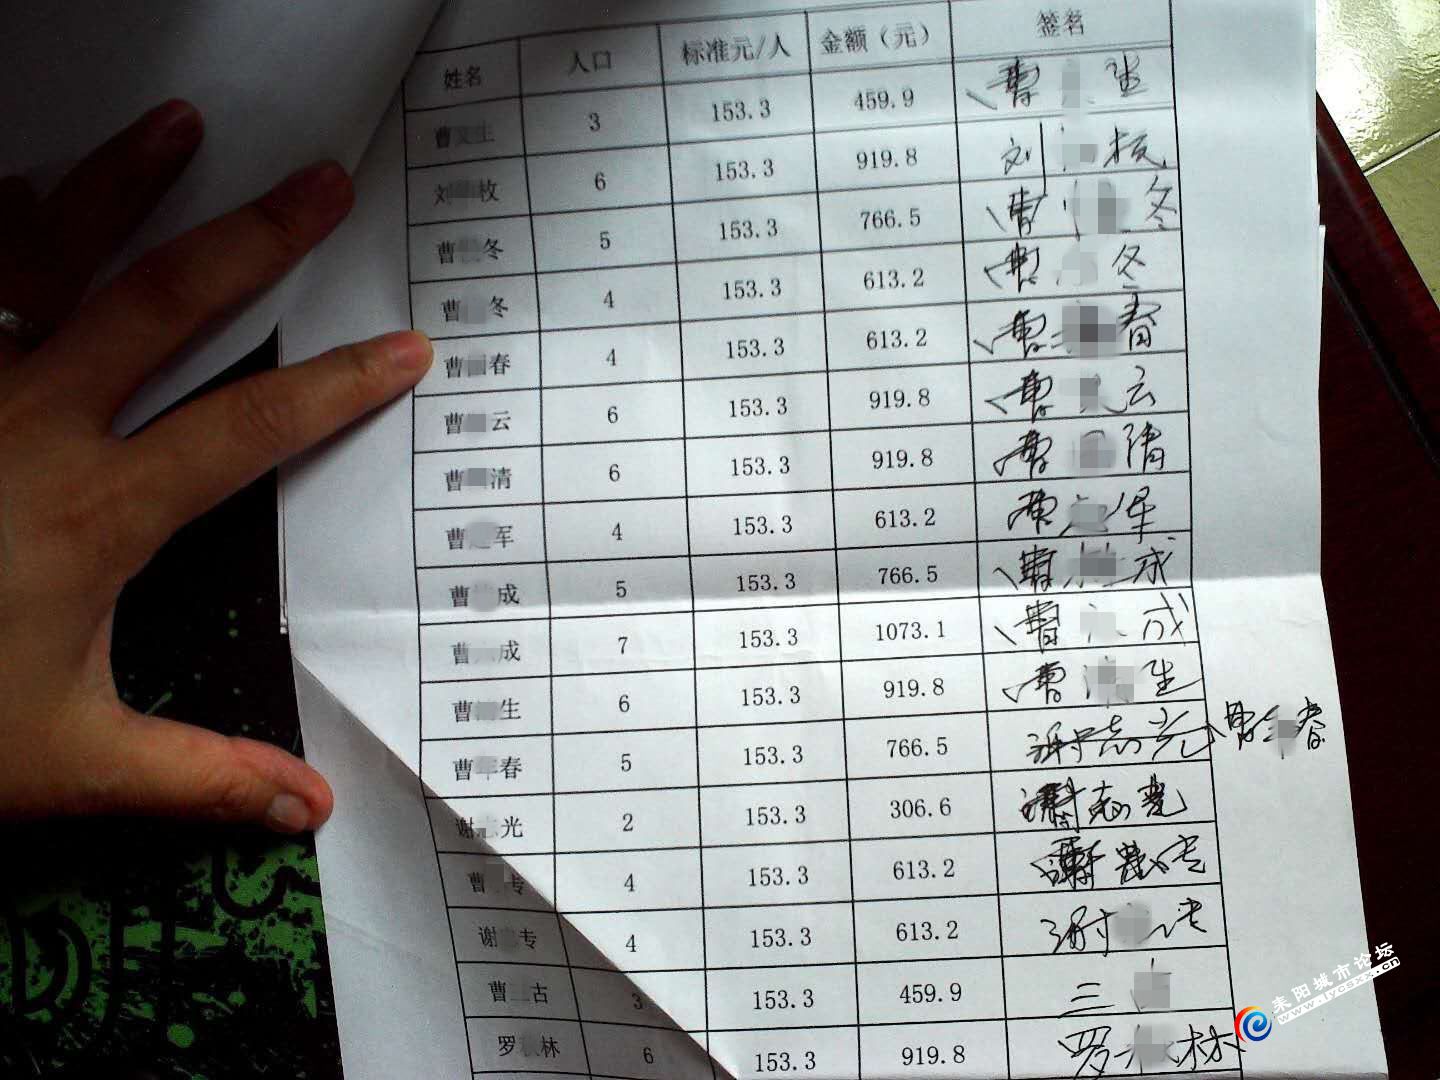 姓名 人口 标准元/人 金额（元） 签名
曹 生 3 153.3 459.9 曹 生
刘 枚 6 153.3 919.8 刘 枚
曹 冬 5 153.3 766.5 曹 冬
曹 冬 4 153.3 613.2 曹 冬
曹 春 4 153.3 613.2 曹 春
曹 云 6 153.3 919.8 曹 云
曹 清 6 153.3 919.8 曹 清
曹 军 4 153.3 613.2 曹 军
曹 成 5 153.3 766.5 曹 成
曹 成 7 153.3 1073.1 曹 成
曹 生 6 153.3 919.8 曹 生
曹 春 5 153.3 766.5 谢志光 曹 春
谢 光 2 153.3 306.6 谢志光
曹 专 4 153.3 613.2 专
谢 专 4 153.3 613.2 谢 专
曹 古 3 153.3 459.9 三
罗 林 6 153.3 919.8 罗 林
耒阳城市论坛
www.lycsxx.cn